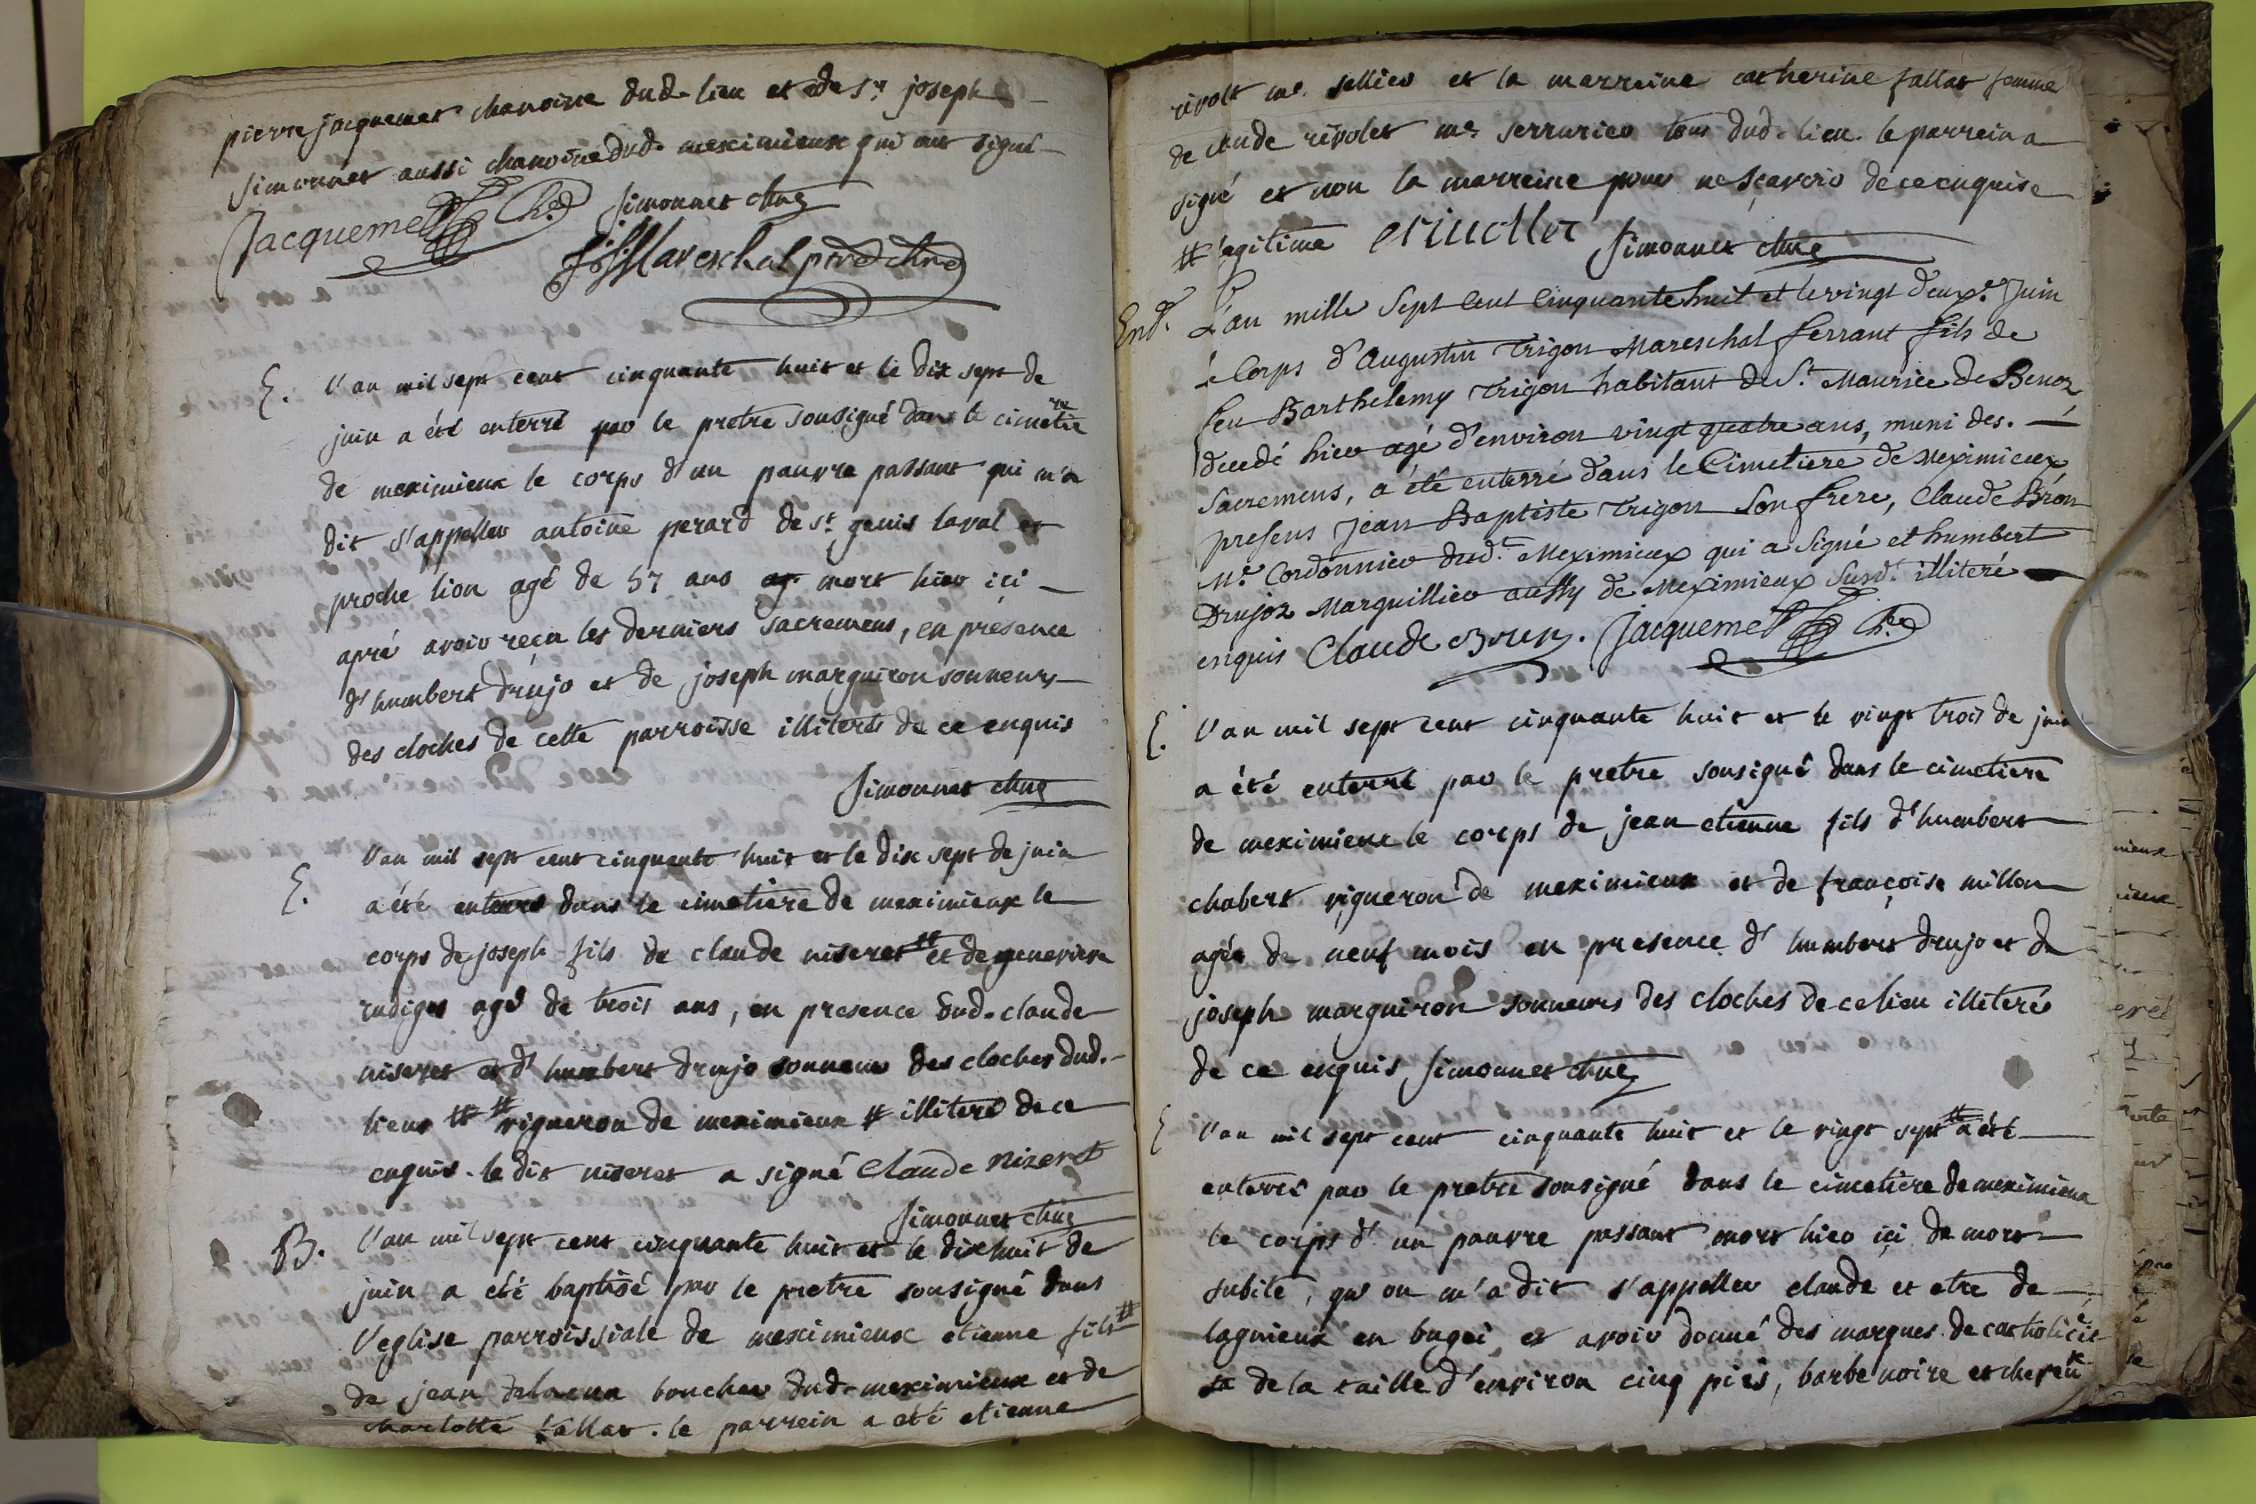 pierre jacquemet chanoine dud. lieu et de Sr joseph
simonnet aussi chanoine dud. meximieux qui ont signé
Jacquemet Che simonnet chne
Mareschal preb chne
E. l'an mil sept cent cinquante huit et le dix sept de
juin a été enterré par le pretre sousigné dans le cimetiere
de meximieux le corps d'un pauvre passant qui m'a
dit s'appeller antoine perard de st genis laval et
proche lion agé de 57 ans mort hier ici
apré avoir reçu les derniers sacremens, en presence
d'humbert drujo et de joseph marguiron sonneurs
des cloches de cette parroisse illiterés de ce enquis
simonnet chne
E. l'an mil sept cent cinquante huit et le dix sept de juin
a été enterré dans le cimetiere de meximieux le
corps de joseph fils de claude niseret # et de genevieve
rudiget agé de trois ans, en presence dud. claude
niseret et d'humbert drujo sonneur des cloches dud.
lieux # # vigneron de meximieux # illiteré de ce
enquis. le dit niseret a signé Claude nizeret
simonnet chne
B. l'an mil sept cent cinquante huit et le dixhuit de
juin a été baptisé par le pretre sousigné dans
l'eglise parroissiale de meximieux etienne fils #
de jean delacua boucher dud. meximieux et de
charlotte fallat. le parrein a été etienne
rivolt me. sellier et la marreine catherine fallat femme
de claude rivolet me serrurier tous dud. lieu. le parrein a
signé et non la marreine pour ne sçavoir de ce enquise
# legitime simonnet chne
End. L'an mille Sept Cent Cinquante huit et le vingt deuxe. Juin
Le Corps d'augustin Trigon Mareschal ferrant fils de
feu Barthelemy Trigon habitant de St. Maurice de Benoz
decedé hier agé d'environ vingt quatre ans, muni des.
Sacremens, a été enterré dans le Cimetiere de Meximieux
presens Jean Baptiste Trigon Son frere, Claude Bron
Me. Cordonnier dud.t Meximieux qui a Signé et humbert
Drujoz Marguillier aussy de Meximieux Susd.t illiteré
enquis Claude Bron. Jacquemet Che
E. l'an mil sept cent cinquante huit et le vingt trois de juin
a été enterré par le pretre sousigné dans le cimetiere
de meximieux le corps de jean etienne fils d'humbert
chabert vigneron de meximieux et de françoise millon
agée de neuf mois en presence d'humbert drujo et de
joseph marguiron sonneurs des cloches de ce lieu illiterés
de ce enquis simonnet chne
E l'an mil sept cent cinquante huit et le vingt sept # a été
enterré par le pretre sousigné dans le cimetiere de meximieux
le corps d'un pauvre passant mort hier ici de mort
subite, qu'on m'a dit s'appeller claude et etre de
lagnieux en bugei et avoir donné des marques de catholicité
de la taille d'environ cinq piés, barbe noire et cheveux